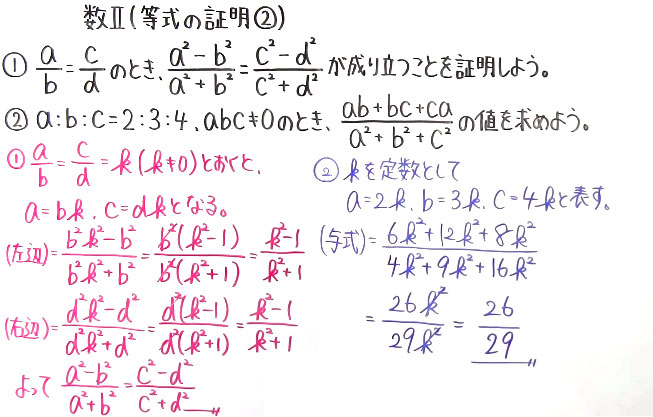 数Ⅱ(等式の証明②)
① a/b = c/d のとき、(a²-b²)/(a²+b²) = (c²-d²)/(c²+d²) が成り立つことを証明しよう。
② a:b:c=2:3:4、abc≠0のとき、(ab+bc+ca)/(a²+b²+c²) の値を求めよう。
① a/b = c/d = k (k≠0)とおくと、
a=bk、c=dkとなる。
(左辺)= (b²k²-b²)/(b²k²+b²) = b²(k²-1)/b²(k²+1) = (k²-1)/(k²+1)
(右辺)= (d²k²-d²)/(d²k²+d²) = d²(k²-1)/d²(k²+1) = (k²-1)/(k²+1)
よって (a²-b²)/(a²+b²) = (c²-d²)/(c²+d²)
② kを定数として
a=2k、b=3k、c=4kと表す。
(与式)= (6k²+12k²+8k²)/(4k²+9k²+16k²)
= 26k²/29k² = 26/29